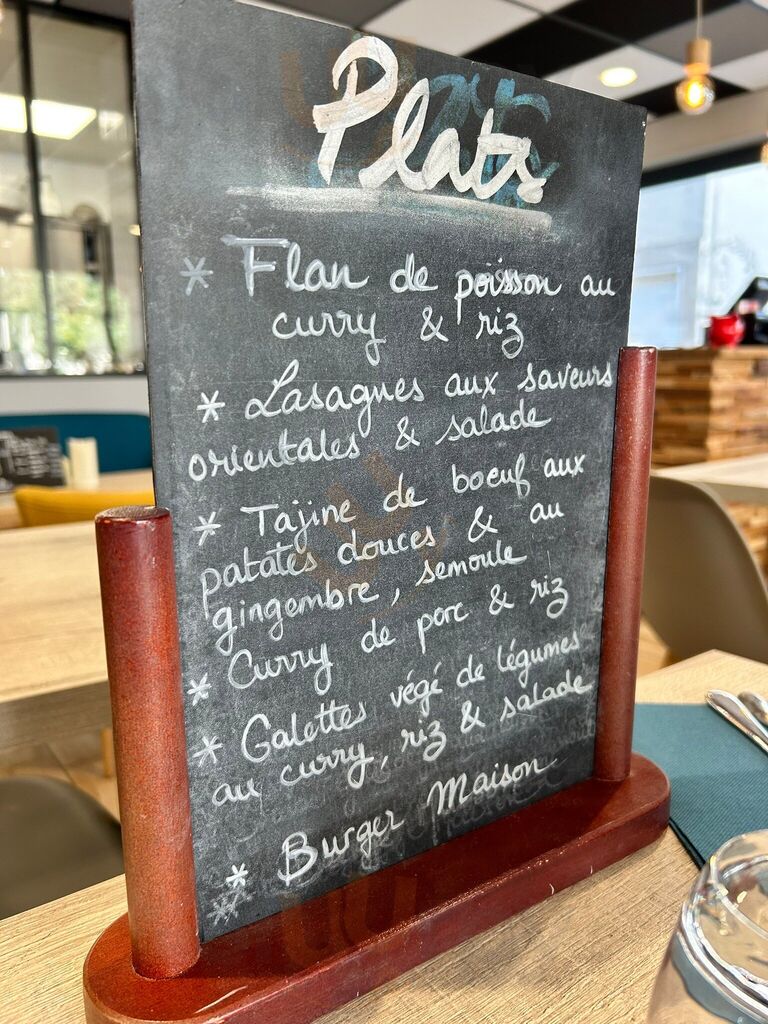 Plats
* Flan de poisson au
curry & riz
* Lasagnes aux saveurs
orientales & salade
* Tajine de boeuf aux
patates douces & au
gingembre, semoule
* Curry de porc & riz
* Galettes végé de légumes
au curry, riz & salade
* Burger Maison